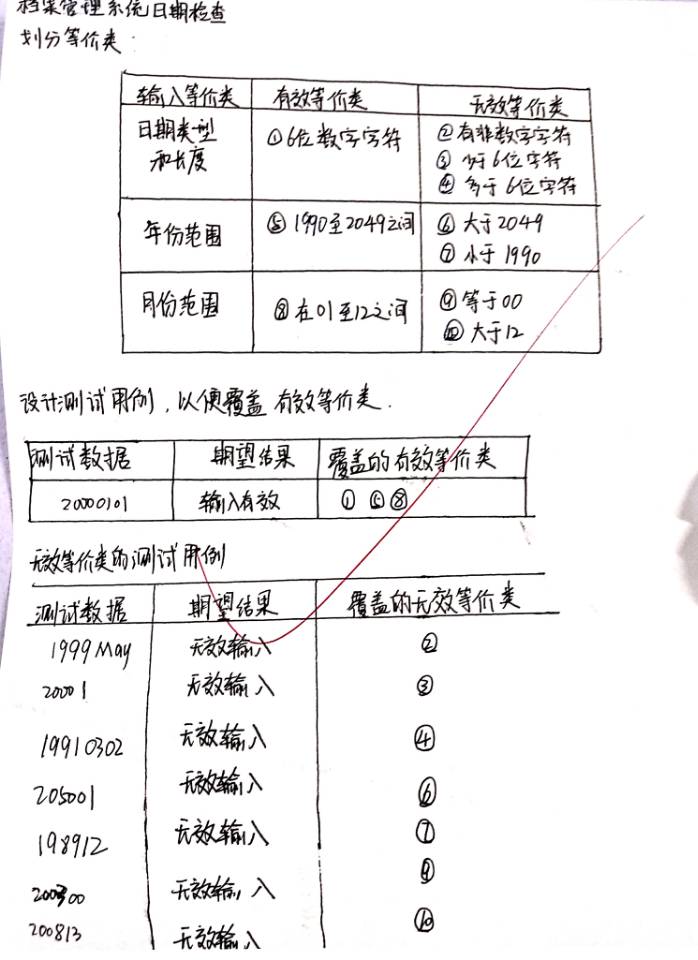 档案管理系统日期检查
划分等价类:
输入等价类 有效等价类 无效等价类
日期类型和长度 ①6位数字字符 ②有非数字字符
③少于6位字符
④多于6位字符
年份范围 ⑤1990至2049之间 ⑥大于2049
⑦小于1990
月份范围 ⑧在01至12之间 ⑨等于00
⑩大于12
设计测试用例,以便覆盖有效等价类.
测试数据 期望结果 覆盖的有效等价类
20000101 输入有效 ①⑤⑧
无效等价类的测试用例
测试数据 期望结果 覆盖的无效等价类
1999May 无效输入 ②
20001 无效输入 ③
19910302 无效输入 ④
205001 无效输入 ⑥
198912 无效输入 ⑦
200300 无效输入 ⑨
200813 无效输入 ⑩